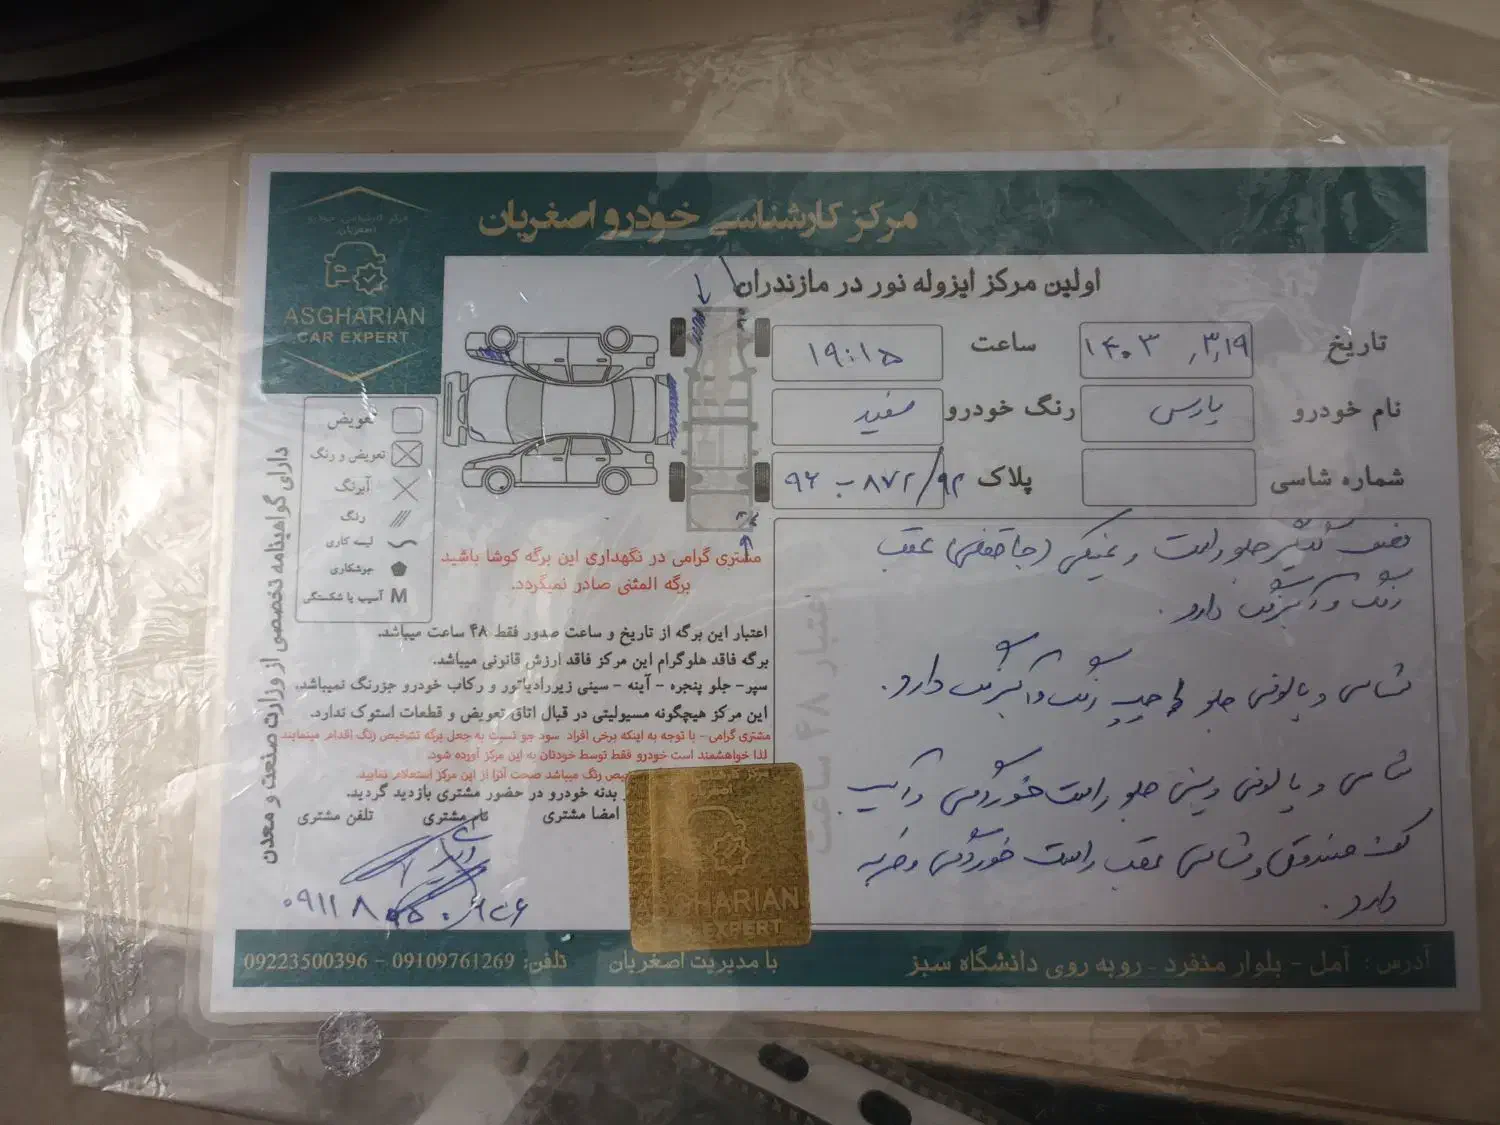 مرکز کارشناسی خودرو اصغریان
مرکز کارشناسی خودرو
اصغریان
ASGHARIAN
CAR EXPERT
اولین مرکز ایزوله نور در مازندران
تاریخ ۱۴۰۳,۳,۱۹ ساعت ۱۹:۱۵
نام خودرو پارس رنگ خودرو سفید
شماره شاسی پلاک ۹۶ ب ۸۷۲/۹۲
تعویض
تعویض و رنگ
آبرنگ
رنگ
لیسه کاری
جوشکاری
M آسیب یا شکستگی
دارای گواهینامه تخصصی از وزارت صنعت و معدن
گلگیر جلو راست و عقب
رنگ و آبرنگ دارد.
شاسی و پالونی جلو چپ رنگ و آبرنگ دارد.
شاسی و پالونی و سینی جلو راست خوردگی و آسیب
کف صندوق و شاسی عقب راست خوردگی و ضربه
دارد.
مشتری گرامی در نگهداری این برگه کوشا باشید
برگه المثنی صادر نمیگردد.
اعتبار این برگه از تاریخ و ساعت صدور فقط ۴۸ ساعت میباشد.
برگه فاقد هلوگرام این مرکز فاقد ارزش قانونی میباشد.
سپر- جلو پنجره - آینه - سینی زیررادیاتور و رکاب خودرو جزرنگ نمیباشد.
این مرکز هیچگونه مسیولیتی در قبال اتاق تعویض و قطعات استوک ندارد.
مشتری گرامی - با توجه به اینکه برخی افراد سود جو نسبت به جعل برگه تشخیص رنگ اقدام مینمایند
لذا خواهشمند است خودرو فقط توسط خودتان به این مرکز آورده شود.
رنگ میباشد صحت آنرا از این مرکز استعلام نمایید.
بدنه خودرو در حضور مشتری بازدید گردید.
امضا مشتری نام مشتری تلفن مشتری
اعتبار ۴۸ ساعت
ASGHARIAN
EXPERT
آدرس: آمل - بلوار منفرد - روبه روی دانشگاه سبز با مدیریت اصغریان تلفن: 09109761269 - 09223500396